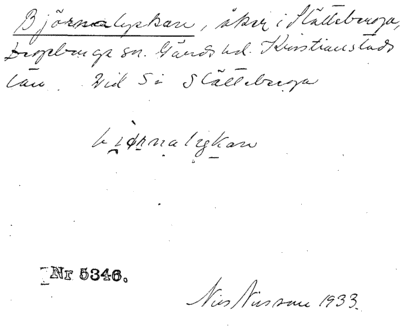 Björnalyckan, åker i Slätteberga,
Degeberga sn. Gärds hd. Kristianstads
län. Vid S: Slätteberga
bjørnalykan
Nr 5346.
Nils Nilsson 1933.